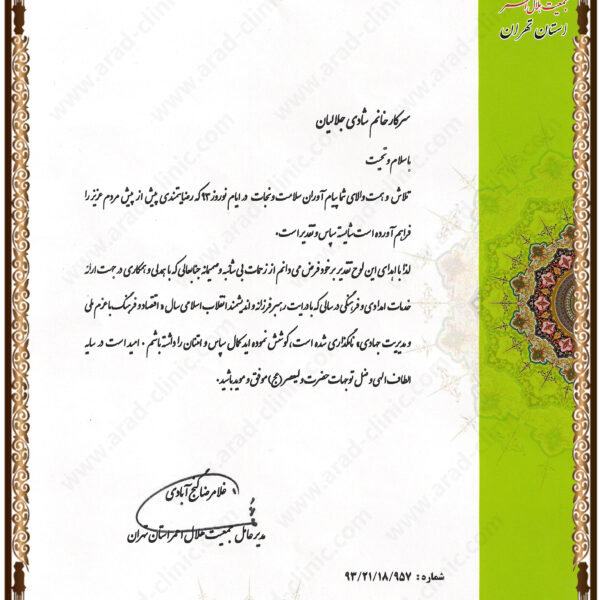 جمعیت هلال احمر
استان تهران
سرکار خانم شادی جلالیان
با سلام و تحیت
تلاش و همت والای شما پیام آوران سلامت و نجات در ایام نوروز ۹۳ که رضایتمندی بیش از پیش مردم عزیز را
فراهم آورده است شایسته سپاس و تقدیر است.
لذا با اهدای این لوح تقدیر بر خود فرض می دانم از زحمات بی شائبه و صمیمانه جنابعالی که با همدلی و همکاری در جهت ارائه
خدمات امدادی و فرهنگی در سالی که با درایت رهبر فرزانه و اندیشمند انقلاب اسلامی سال «اقتصاد و فرهنگ با عزم ملی
و مدیریت جهادی» نامگذاری شده است، کوشش نموده اید کمال سپاس و امتنان را داشته باشم. امید است در سایه
الطاف الهی و فضل توجهات حضرت ولیعصر (عج) موفق و موید باشید.
غلامرضا گنج آبادی
مدیرعامل جمعیت هلال احمر استان تهران
شماره : ۹۳/۲۱/۱۸/۹۵۷
www.arad-clinic.com